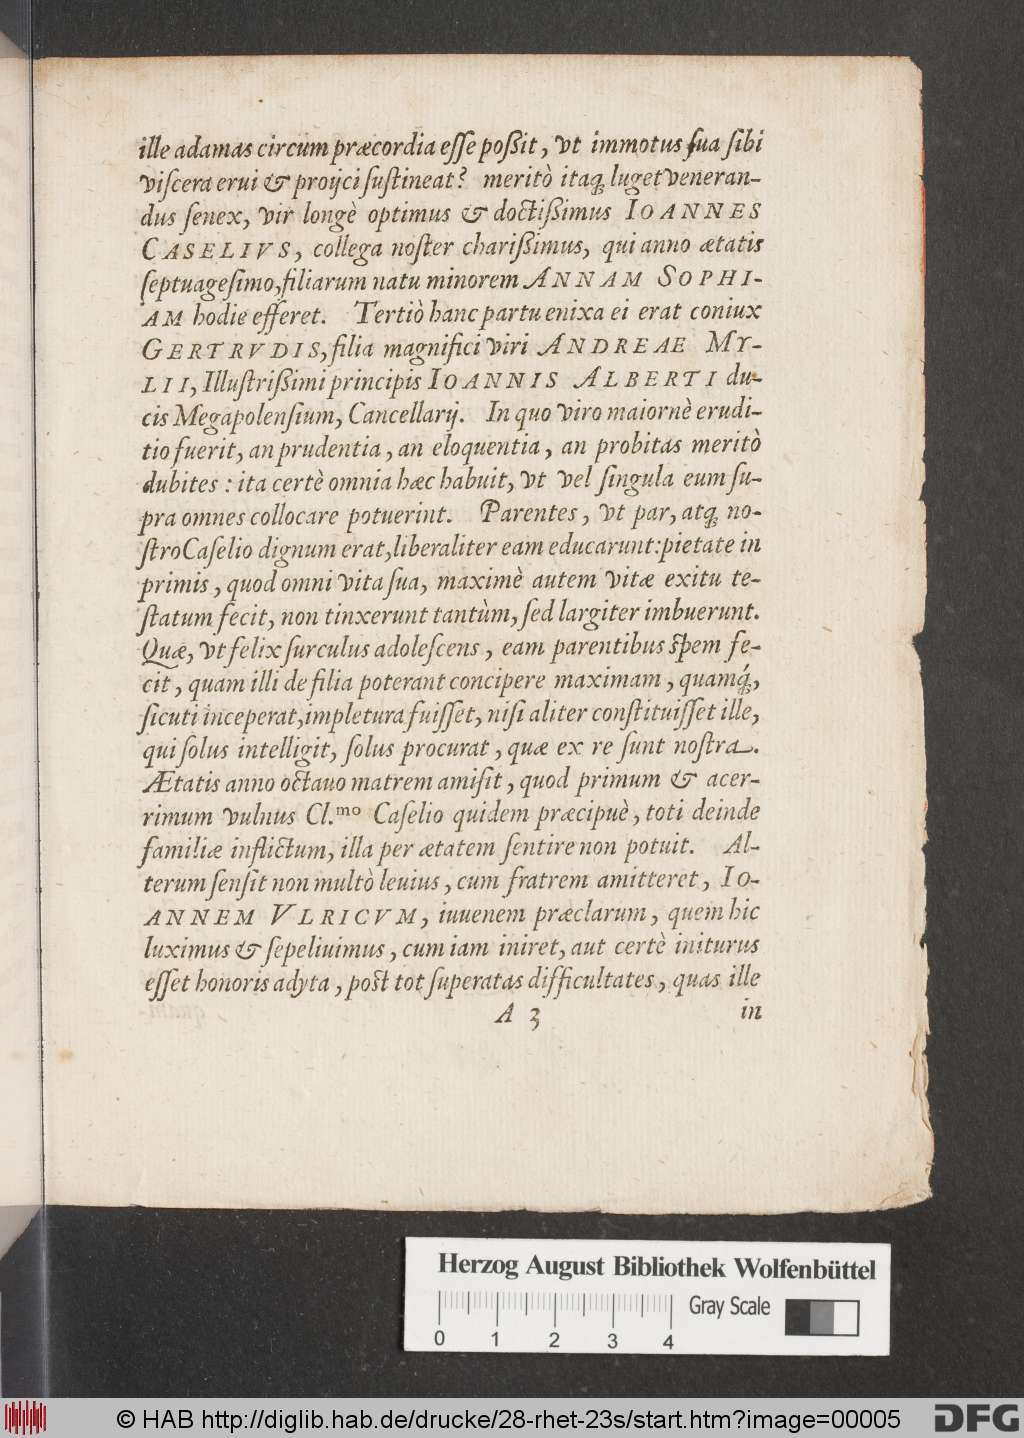 ille adamas circum præcordia eſſe poßit, vt immotus ſua ſibi
viſcera erui & proijci ſuſtineat? meritò itaq́ luget veneran-
dus ſenex, vir longè optimus & doctißimus IOANNES
CASELIVS, collega noſter charißimus, qui anno ætatis
ſeptuageſimo, filiarum natu minorem ANNAM SOPHI-
AM hodie efferet. Tertiò hanc partu enixa ei erat coniux
GERTRVDIS, filia magnifici viri ANDREAE MY-
LII, Illuſtrißimi principis IOANNIS ALBERTI du-
cis Megapolenſium, Cancellarij. In quo viro maiornè erudi-
tio fuerit, an prudentia, an eloquentia, an probitas meritò
dubites: ita certè omnia hæc habuit, vt vel ſingula eum ſu-
pra omnes collocare potuerint. Parentes, vt par, atq́ no-
ſtro Caſelio dignum erat, liberaliter eam educarunt: pietate in
primis, quod omni vita ſua, maximè autem vitæ exitu te-
ſtatum fecit, non tinxerunt tantùm, ſed largiter imbuerunt.
Quæ, vt felix ſurculus adoleſcens, eam parentibus ſpem fe-
cit, quam illi de filia poterant concipere maximam, quamq́;,
ſicuti inceperat, impletura fuiſſet, niſi aliter conſtituiſſet ille,
qui ſolus intelligit, ſolus procurat, quæ ex re ſunt noſtra.
Ætatis anno octauo matrem amiſit, quod primum & acer-
rimum vulnus Cl.mo Caſelio quidem præcipuè, toti deinde
familiæ inflictum, illa per ætatem ſentire non potuit. Al-
terum ſenſit non multò leuius, cum fratrem amitteret, IO-
ANNEM VLRICVM, iuuenem præclarum, quem hic
luximus & ſepeliuimus, cum iam iniret, aut certè initurus
eſſet honoris adyta, poſt tot ſuperatas difficultates, quas ille
A 3 in
Herzog August Bibliothek Wolfenbüttel
0 1 2 3 4 Gray Scale
© HAB http://diglib.hab.de/drucke/28-rhet-23s/start.htm?image=00005 DFG